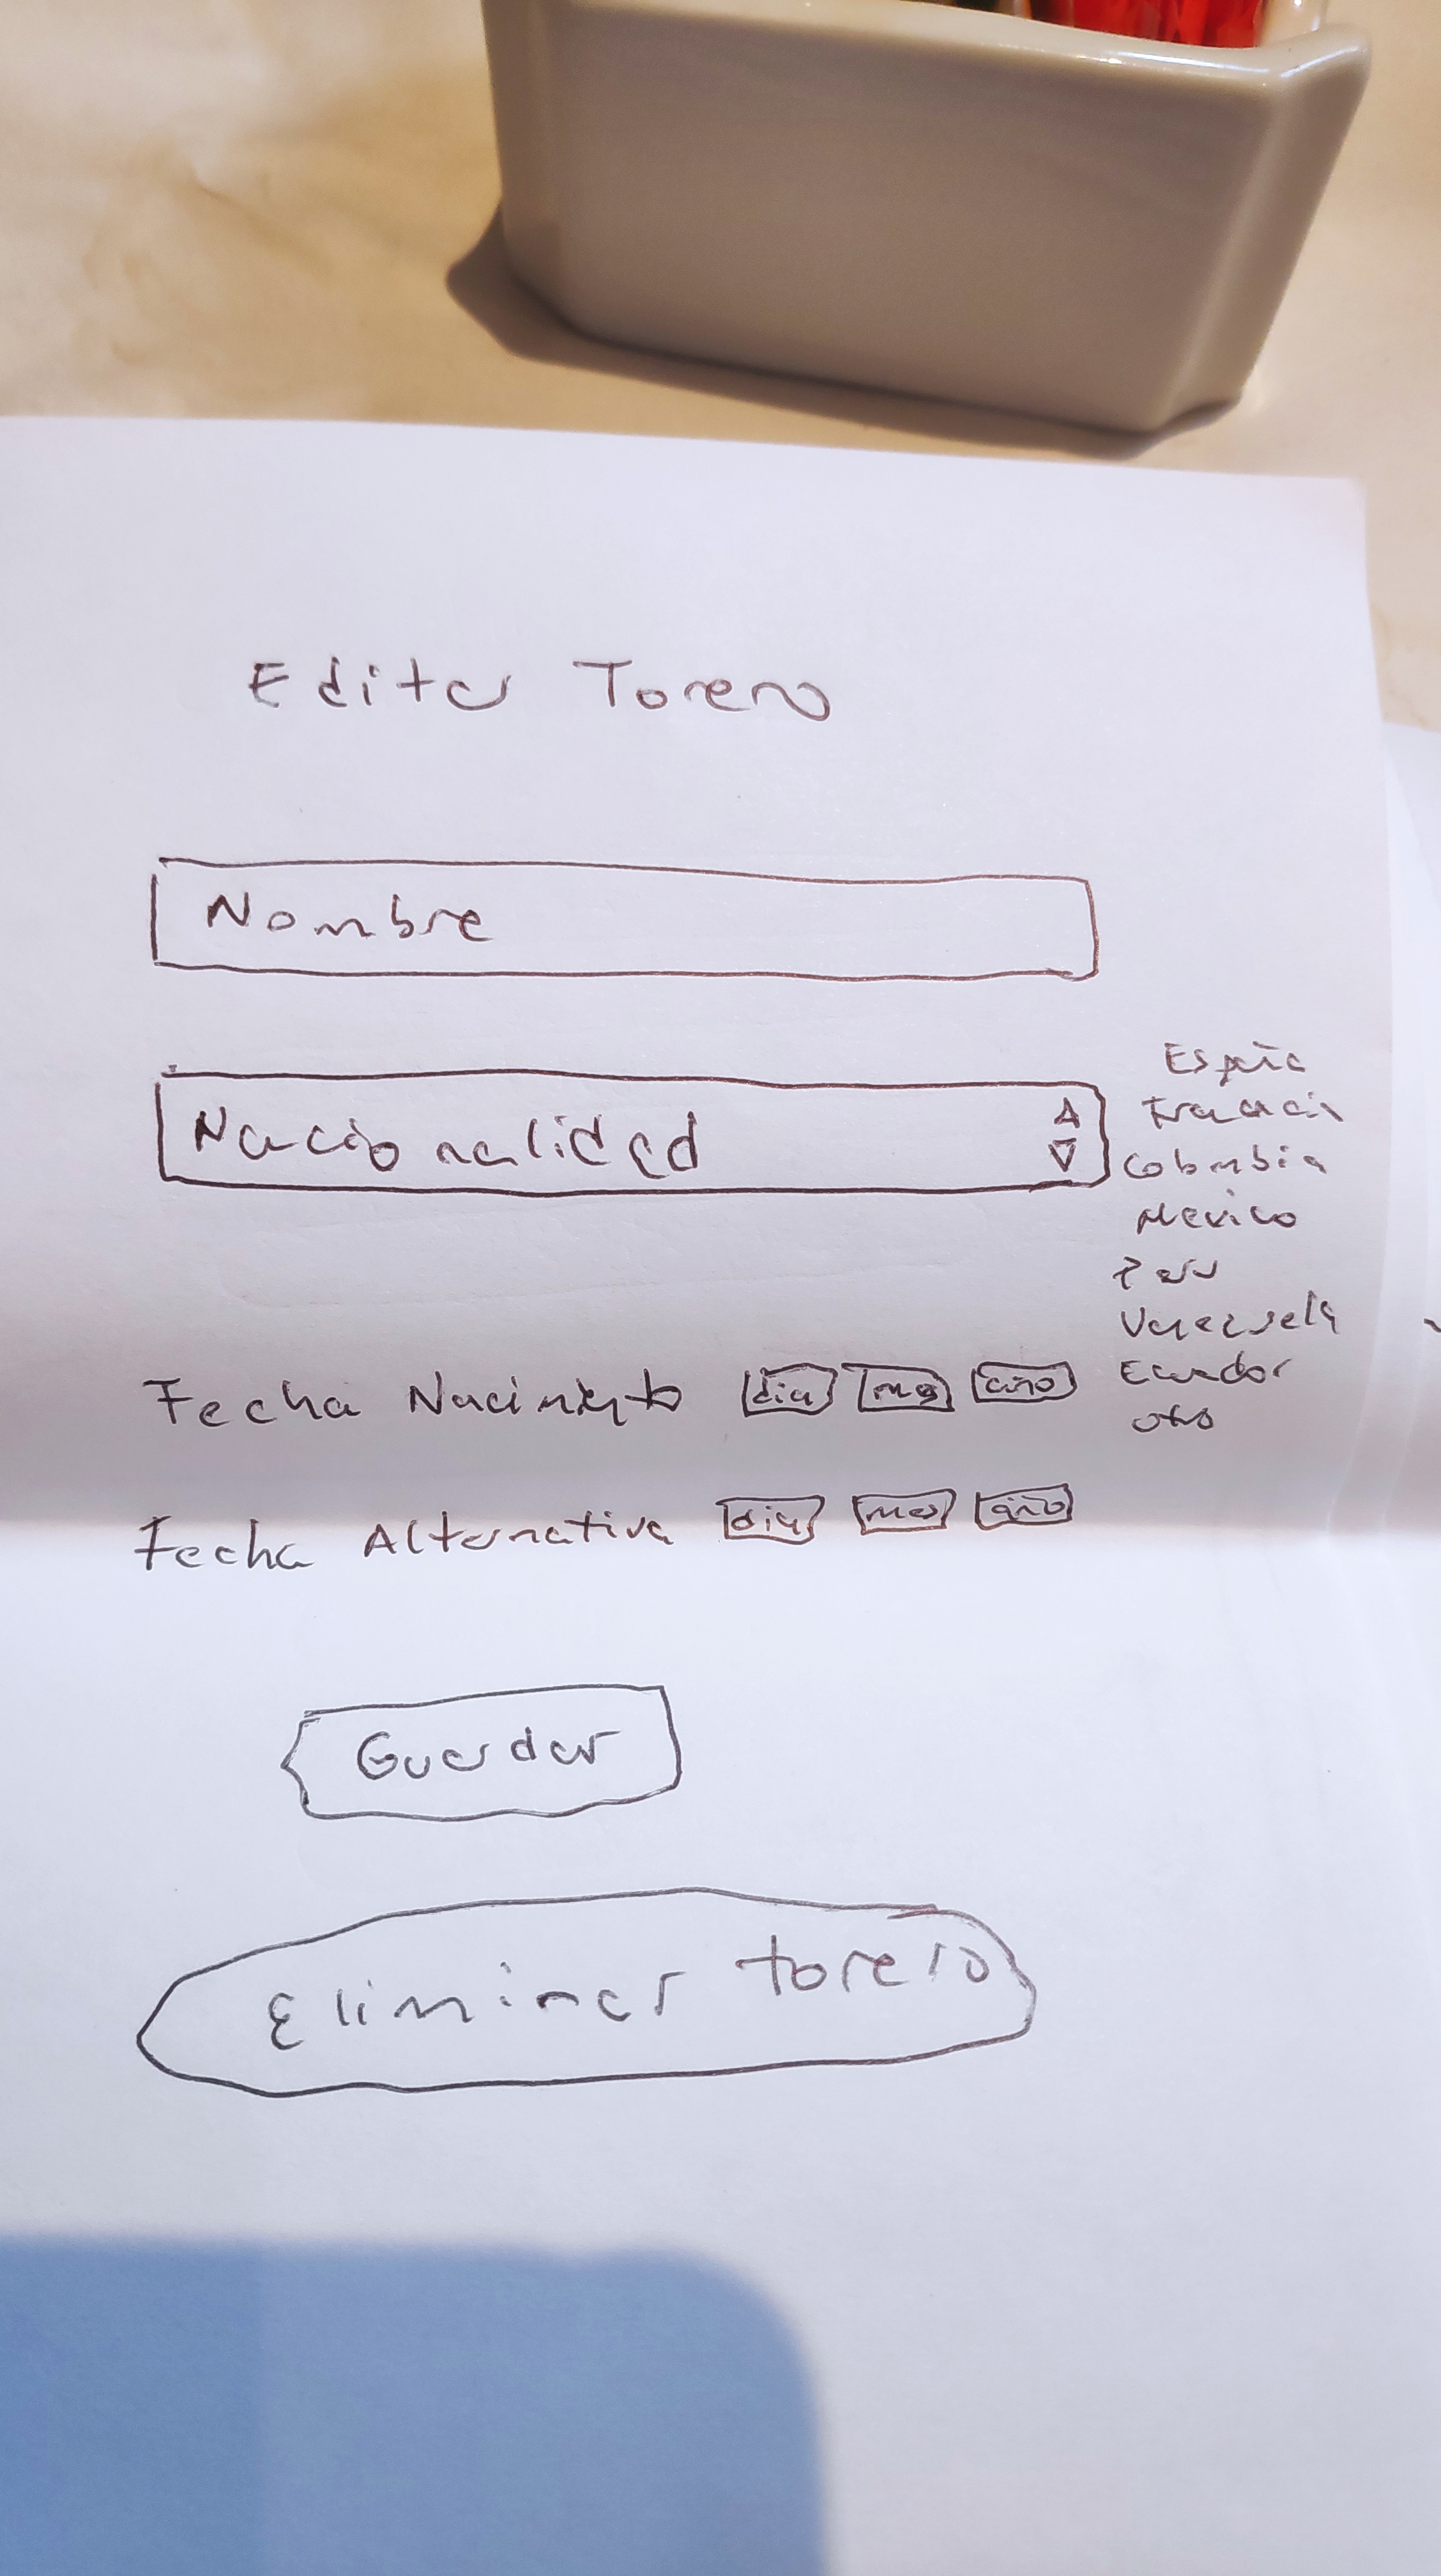 Editar Torero
Nombre
Nacionalidad
España
Francia
Colombia
Mexico
Peru
Venezuela
Ecuador
otro
Fecha Nacimiento dia mes año
Fecha Alternativa dia mes año
Guardar
Eliminar torero